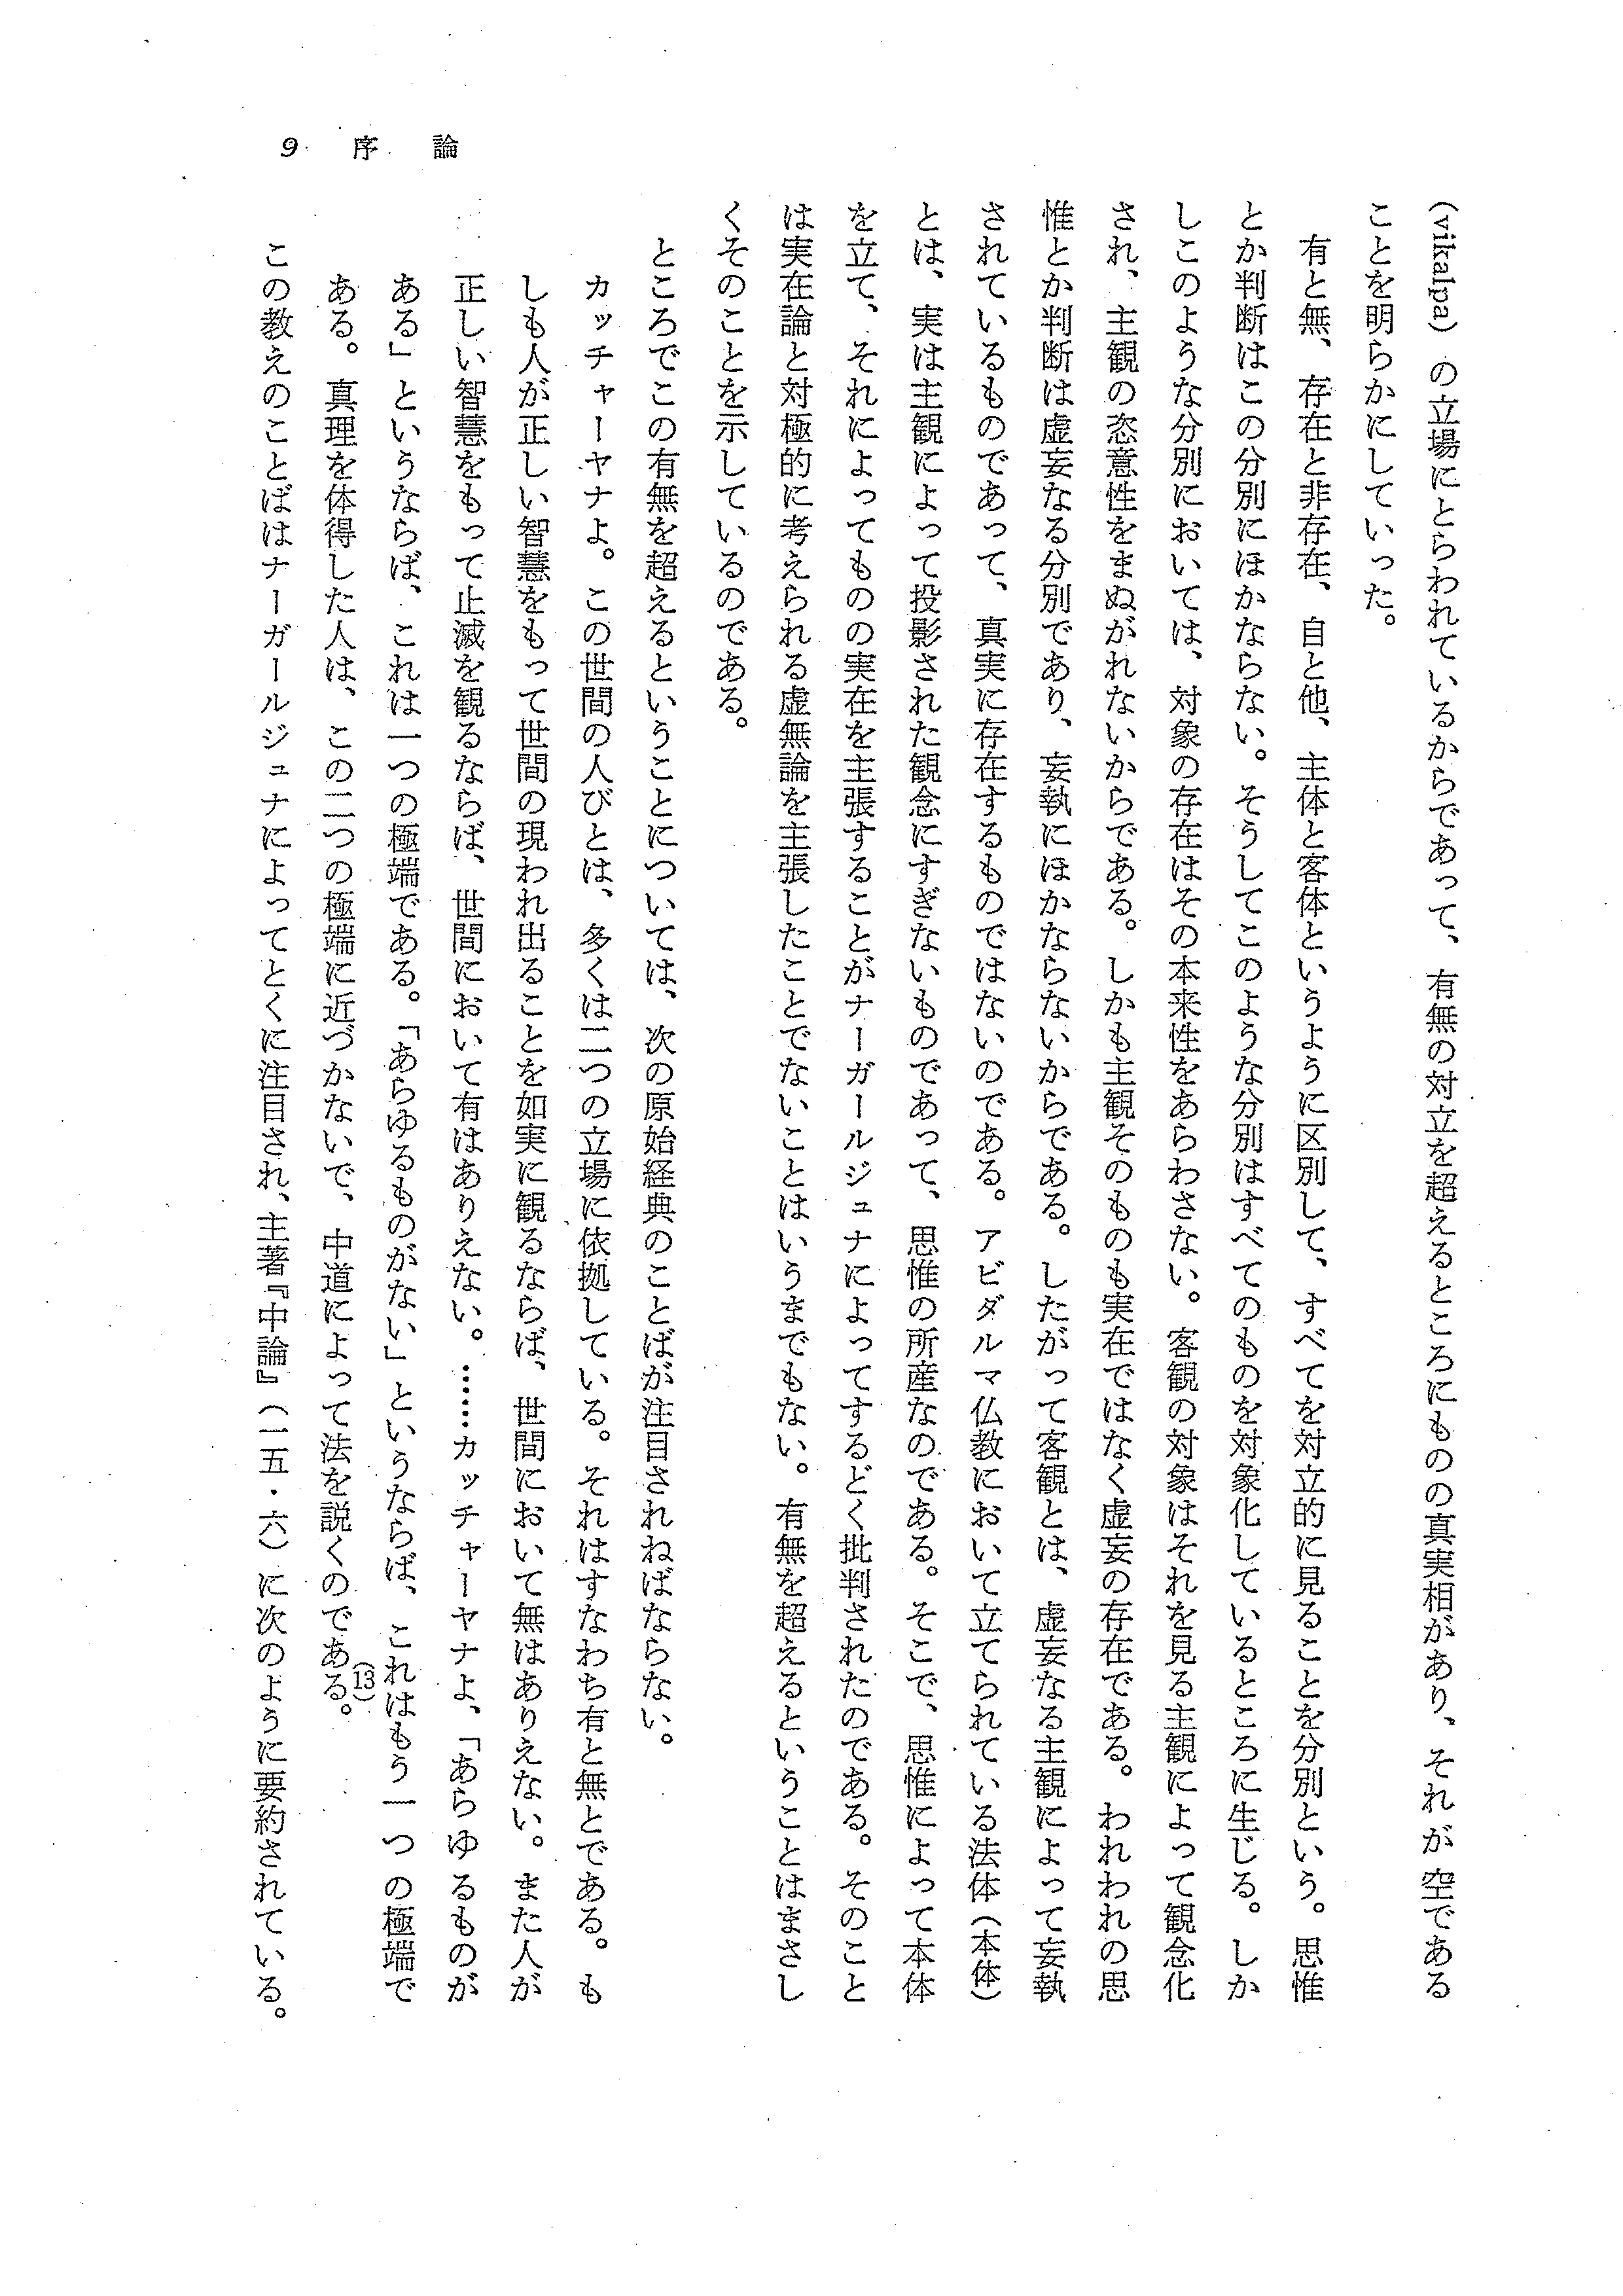 9 序論
(vikalpa)の立場にとらわれているからであって、有無の対立を超えるところにものの真実相があり、それが空である
ことを明らかにしていった。
有と無、存在と非存在、自と他、主体と客体というように区別して、すべてを対立的に見ることを分別という。思惟
とか判断はこの分別にほかならない。そうしてこのような分別はすべてのものを対象化しているところに生じる。しか
しこのような分別においては、対象の存在はその本来性をあらわさない。客観の対象はそれを見る主観によって観念化
され、主観の恣意性をまぬがれないからである。しかも主観そのものも実在ではなく虚妄の存在である。われわれの思
惟とか判断は虚妄なる分別であり、妄執にほかならないからである。したがって客観とは、虚妄なる主観によって妄執
されているものであって、真実に存在するものではないのである。アビダルマ仏教において立てられている法体(本体)
とは、実は主観によって投影された観念にすぎないものであって、思惟の所産なのである。そこで、思惟によって本体
を立て、それによってものの実在を主張することがナーガールジュナによってするどく批判されたのである。そのこと
は実在論と対極的に考えられる虚無論を主張したことでないことはいうまでもない。有無を超えるということはまさし
くそのことを示しているのである。
ところでこの有無を超えるということについては、次の原始経典のことばが注目されねばならない。
カッチャーヤナよ。この世間の人びとは、多くは二つの立場に依拠している。それはすなわち有と無とである。も
しも人が正しい智慧をもって世間の現われ出ることを如実に観るならば、世間において無はありえない。また人が
正しい智慧をもって止滅を観るならば、世間において有はありえない。……カッチャーヤナよ、「あらゆるものが
ある」というならば、これは一つの極端である。「あらゆるものがない」というならば、これはもう一つの極端で
ある。真理を体得した人は、この二つの極端に近づかないで、中道によって法を説くのである。(13)
この教えのことばはナーガールジュナによってとくに注目され、主著『中論』(一五・六)に次のように要約されている。